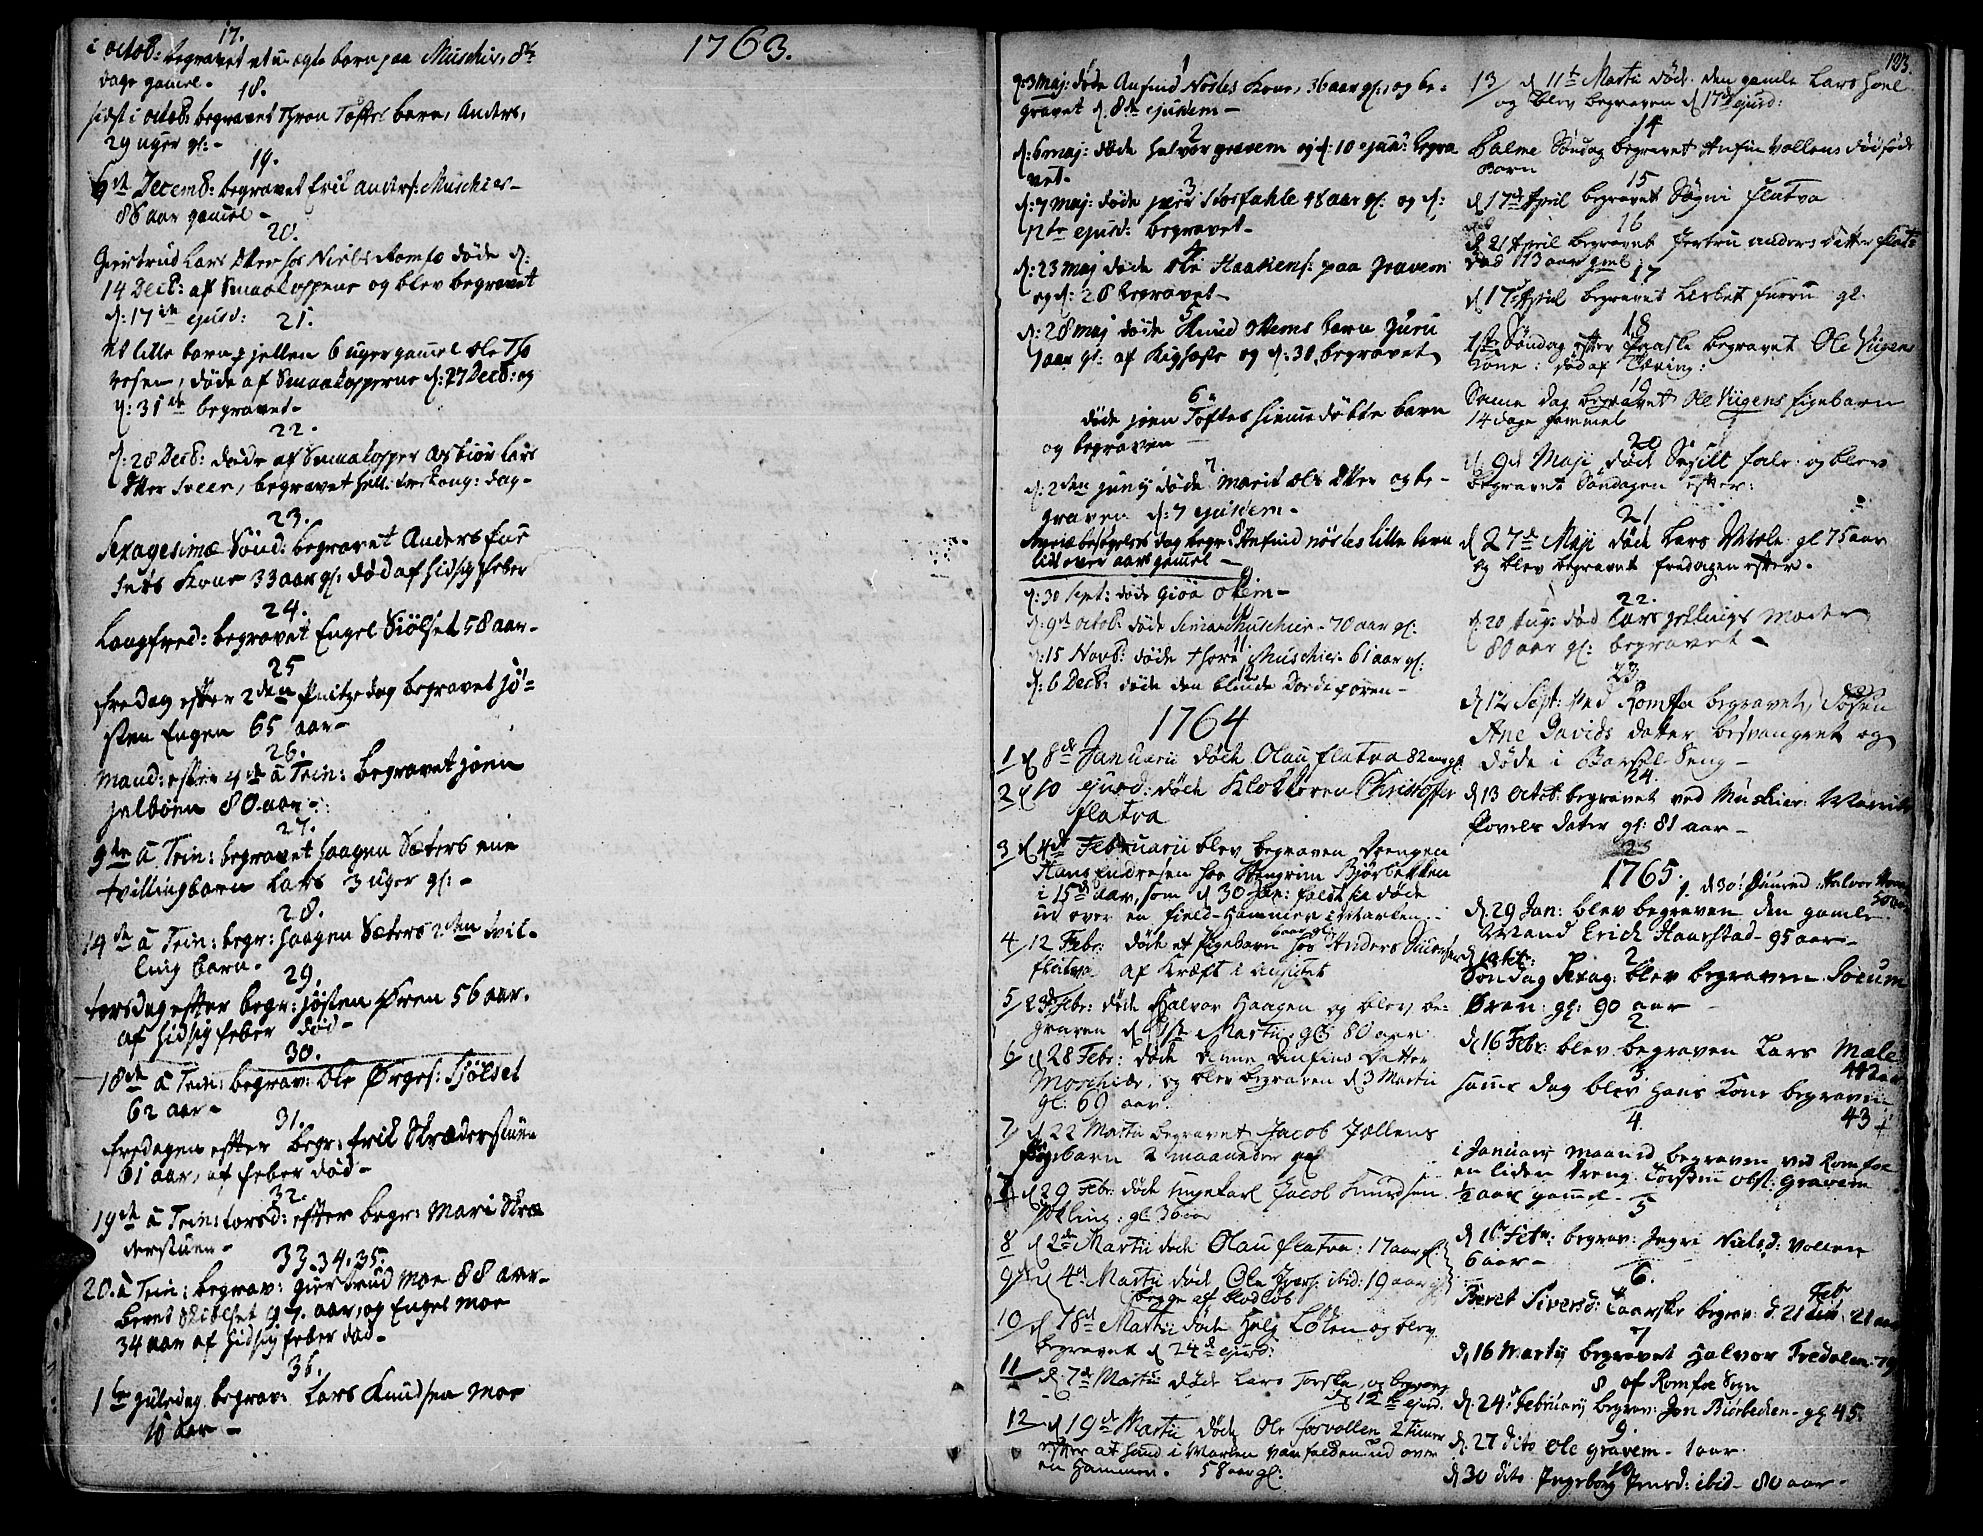 1763.
17.
i octob: begravet et u-egte barn paa Muschier, 8te
dage gamel.
18.
sidst i octob: begravet Thron Toftes barn, Anders,
29 uger gl: -
19.
6te Decemb: begravet Erik anders: Muschier -
88 aar gamel -
20.
Giertrud Lars Dtter hos Niels Romfo døde d:
14 Decb: af Smaakoppene og blev begravet
d: 17de ejusd:
21.
et lille barn p jellen 6 uger gamel Ole Tho
resen, døde af Smaakopperne d: 27 Decb: og
d: 31te begravet -
22.
d: 28 Decb: døde af Smaakopper Lars
Dtter Sveen, begravet hell: trekong: dag -
23.
Sexagesimæ Sønd: begravet Anders fur
sets Kone 33 aar gl: død af hidsig feber
24.
Langfred: begravet Engel Siølset 58 aar -
25
fredag efter 2den Pintzedag begravet Jø=
sten Engen 65 aar -
26.
Mand: efter 4de à Trin: begravet joen
jelbøen 80 aar -
27.
9de à Trin: begravet haagen Sæters ene
tvillingbarn Lars 3 uger gl: -
28.
14de à Trin: begr: haagen Sæters 2den tvil-
ling barn.
29.
torsdag efter begr: jøsten Øren 56 aar.
af hidsig feber død -
30.
18de à Trin: begrav: Ole Ørges: Siølset
62 aar -
31.
fredagen efter begr: Erik Skrædderstuen
61 aar, af feber død -
32.
19de à Trin: torsd: efter begr: Mari Skræ
derstuen -
33. 34. 35.
20. à Trin: begrav: Giertrud moe 88 aar -
Beret Skiølset 97. aar, og Engel moe
34 aar af hidsig feber død -
36.
1te Juledag begrav: Lars Knudsen moe
16 aar -
1
d: 3 maj: døde Anfind Nøstes Kone, 36 aar gl:, og be-
gravet d. 8de ejusdem -
2
d: 6 maj: døde halvor gravem og d: 10 ejusd: begra
vet -
3
d: 7 maj: døde peder Storfahle 48 aar gl: og d:
12te ejusd: begravet -
4
d: 23 maj døde Ole Haakens: paa gravem
og d: 28 begravet -
5
d: 28 maj døde Knud Otems barn Guru
1 aar gl: af Kighoste og d: 30 begravet
6.
døde joen Toftes hiemmedøbte barn
og begraven
7.
d: 2den junij døde Marit Ols Dtter og be-
graven d: 7 ejusdem -
8
Mariæ besøgelses dag begr: Anfind nøstes lille barn
lidt over aars gamel -
9
d: 30 sept: døde Gioa Otem -
10
d: 9de octob: døde Simen Muschier - 70 aar gl:
11
d: 15 Novb: døde Thore Muschier - 61 aar gl:
d: 6 Decb: døde den blinde Dordi poren -
1764
1 d 8de Januarii døde Olau flatva 82 aar gl.
2 d 10 ejusd: døde Klokkeren Christoffer
flatva
3 d 4de Februarii blev begraven Drengen
Hans Endresen hos Biørbekken
i 15de aar, som d 30 Jan: faldt sie døde
ud over en field-Hammer i Marken -
4 12 Febr: døde et pigebarn 6 aar gl: hos Anders
flatva af Kræft i Ansigtet
5 23 Febr: døde Halvor Haagen og blev be-
graven d 1ste Martii gl: 80 aar
6 d 28 Febr: døde Anfins Datter
Moschier, og blev begraven d 3 Martii
gl: 69 aar.
7 d 22 Martii begravet Jacob Jællens
pigebarn 2 maaneder gl
7 d 29 Febr: døde Ungekarl Jacob Knudsen
Jælling: gl: 36 aar
8 d 2de Martii døde Olau flatva: 17 aar gl:
9 d 4de Martii døde Ole Ivers: ibid: 19 aar gl
begge af blodsot
10 d 18de Martii døde Helj Løken og blev
begravet d 24de ejusd:
11 d: 7de Martii døde Lars Torske, og begrav
d 12te ejusd:
12 d 19de Martii døde Ole forvollen 2 timer
efter at hand i Marken var falden ud over
en Hammer. 58 aar gl:
193.
13 d 11te Martii døde den gamle Lars Hoel
og blev begraven d 17de ejusd:
14
Palme Søndag begravet Anfin Vollens dødføde
Barn
15
d 17de April begravet Søgni flatva
16
d 21 April begravet Jertru anders datter flat-
vad 73 aar gml
17
d 17de April begravet Lisbet furru gl.
18
1ste Søndag efter Paaske begravet Ole Viigens
Kone: død af Tæring:
19
Samme dag begravet Ole Viigens pigebarn
14 dage gammel
20
d 9de Maji død Sesilt fale: og blev
begravet Søndagen efter:
21
d 27de Maji døde Lars Miøle gl 75 aar
og blev begravet fredagen efter.
22.
d. 20 Aug: død Lars Jellings Moder
80 aar gl: begravet -
23.
d 12 Sept: ved Romfoe begravet,
Ane Davids datter besvangret og
døde i Barsel Seng -
24.
d 13 Octob: begravet ved Muskier: Marite
Povels dater gl: 81 aar -
25
1765.
1. d 30: Halvor
50 aar
d. 29 Jan: blev begraven den gamle
Mand Erich Haarstad - 95 aar -
2.
Søndag Sexag: blev begraven Joeum
Øren: gl: 90 aar -
2.
d 16 Febr: blev begraven Lars Mæle
442 aar
3
samme dag blev hans Kone begraven
43 +
4.
i Januarij maaned begraven ved Romfoe
en liden Dreng Torstein Obst: Gravem
1/2 aar gammel -
5
d. 10 Febr: begrav: Ingri Nielsd: Vollen
6 aar -
6.
Beret Siversd: Taarske begrav: d. 21 Feb 21 aar
7
d, 16 Martij begravet Halvor Fredalen: 79
8 af Romfoe Sogn
d. 24de Februarij begrav: Jon Biørbeckn - gl 45
9.
d. 27 dito Ole gravem - 1 aar.
10
d 30 dito Ingeborg Jensd: ibid - 80 aar -